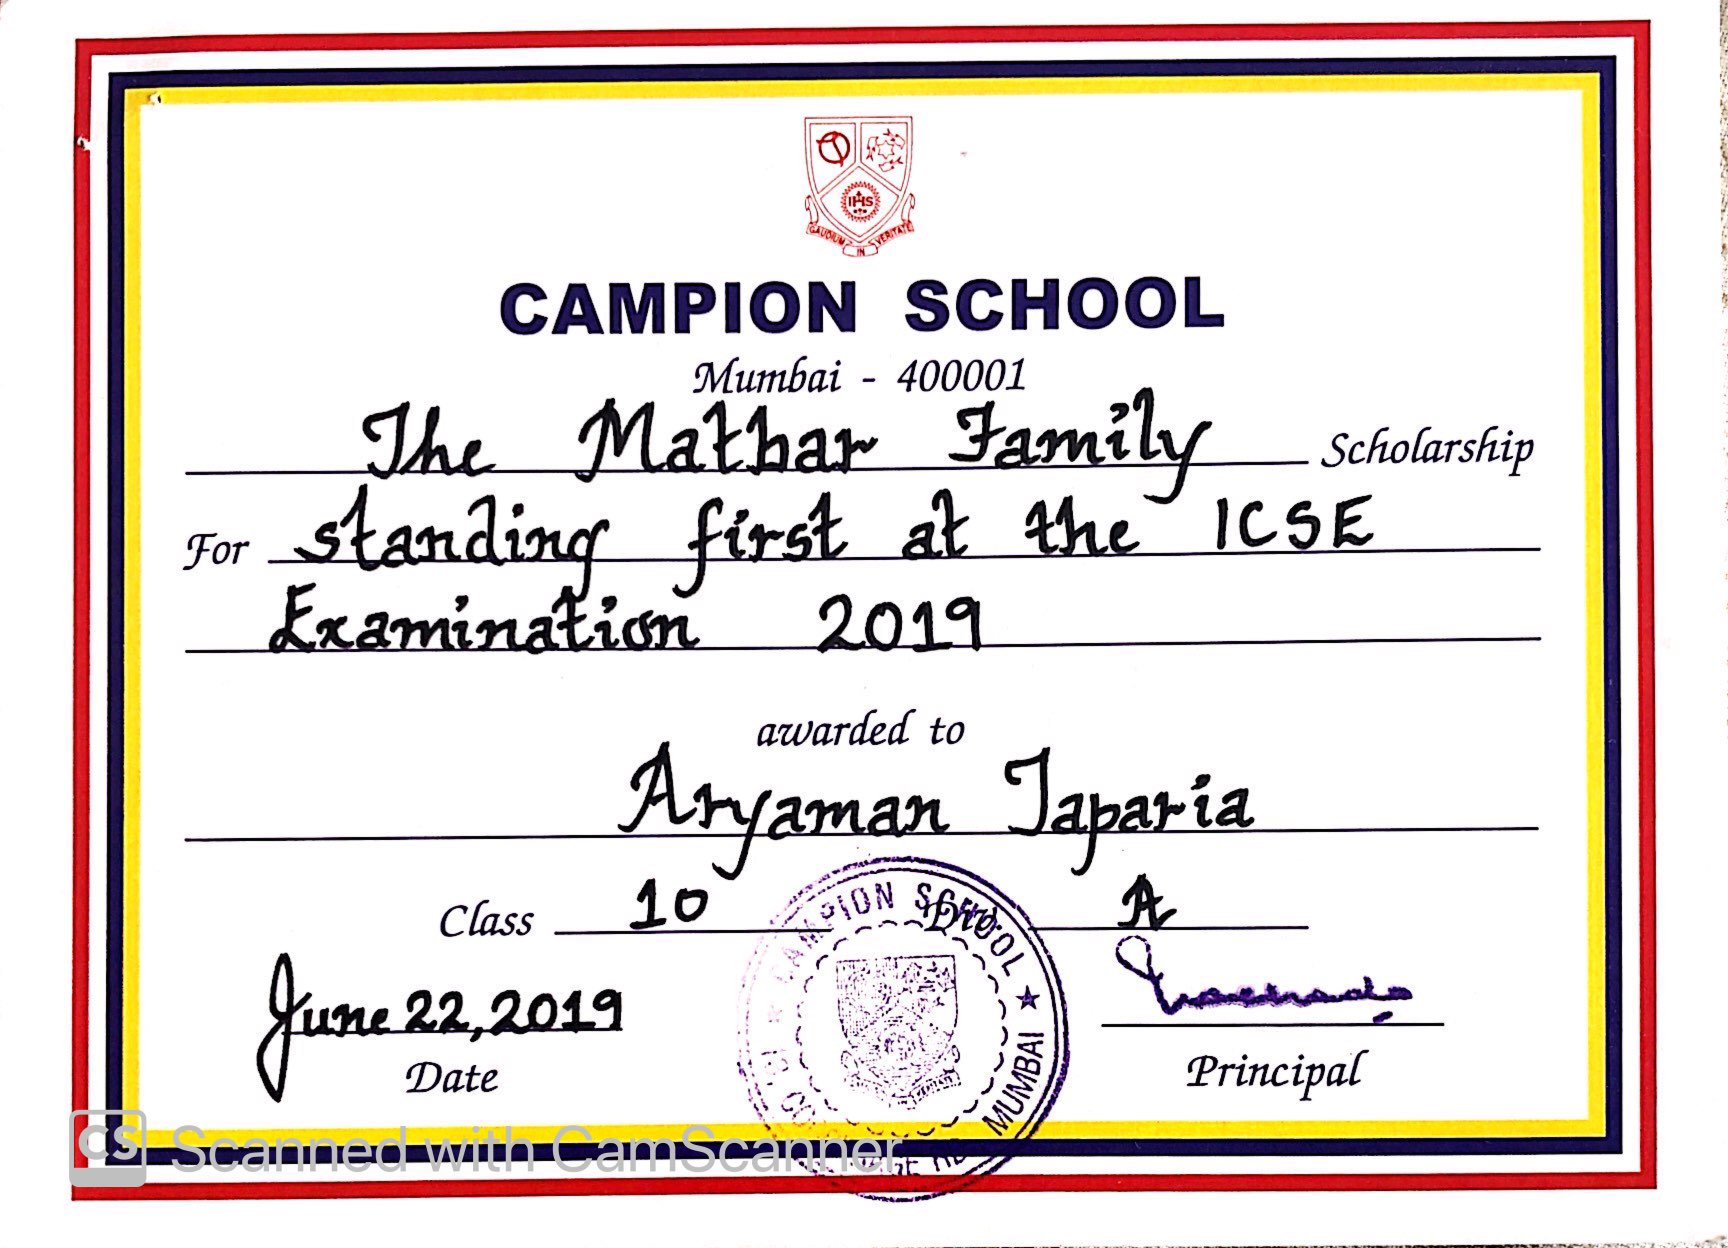 GAUDIUM IN VERITATE
IHS
CAMPION SCHOOL
Mumbai - 400001
The Mathar Family Scholarship
For standing first at the ICSE
Examination 2019
awarded to
Aryaman Taparia
Class 10 Div. A
June 22, 2019
Date
Principal
CAMPION SCHOOL
MUMBAI
CS Scanned with CamScanner